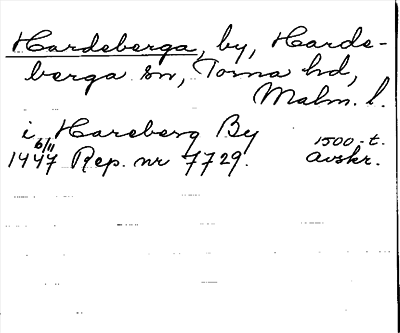 Hardeberga, by, Harde-
berga sn, Torna hd,
Malm. l.
i Hareberg By
1447 6/11 Rep. nr 7729. 1500-t. avskr.